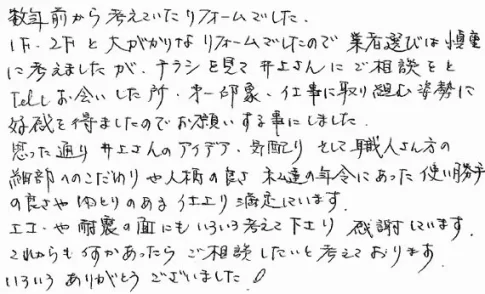 数年前から考えていたリフォームでした.
1F.2Fと大がかりなリフォームでしたので業者選びは慎重
に考えましたが、チラシを見て井上さんにご相談をと
Telしお会いした所・第一印象、仕事に取り組む姿勢に
好感を得ましたのでお願いする事にしました.
思った通り井上さんのアイデア.気配りそして職人さん方の
細部へのこだわりや人柄の良さ私達の年令にあった使い勝手
の良さやゆとりのある仕上り満足しています.
エコ・や耐震の面にもいろいろ考えて下さり感謝しています.
これからも何かあったらご相談したいと考えております.
いろいろありがとうございました